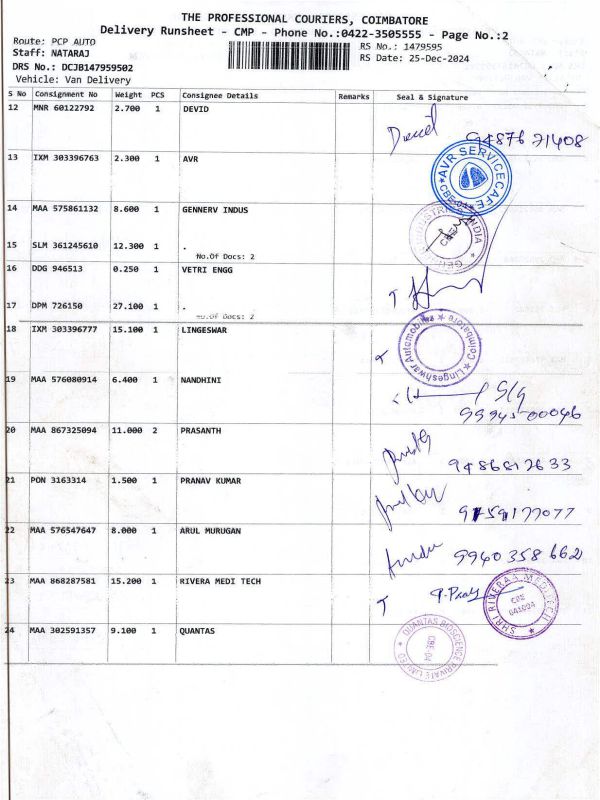 THE PROFESSIONAL COURIERS, COIMBATORE
Delivery Runsheet - CMP - Phone No.:0422-3505555 - Page No.:2
Route: PCP AUTO
Staff: NATARAJ
DRS No.: DCJB147959502
Vehicle: Van Delivery
RS No.: 1479595
RS Date: 25-Dec-2024
S No Consignment No Weight PCS Consignee Details Remarks Seal & Signature
12 MNR 60122792 2.700 1 DEVID
David 9487621408
13 IXM 303396763 2.300 1 AVR
AVR SERVICE CAFE
14 MAA 575861132 8.600 1 GENNERV INDUS
15 SLM 361245610 12.300 1 .
No.Of Docs: 2
16 DDG 946513 0.250 1 VETRI ENGG
17 DPM 726150 27.100 1 .
No.Of Docs: 2
18 IXM 303396777 15.100 1 LINGESWAR
Lingeshwar Automobiles Coimbatore
19 MAA 576080914 6.400 1 NANDHINI
99945 00046
20 MAA 867325094 11.000 2 PRASANTH
9486812633
21 PON 3163314 1.500 1 PRANAV KUMAR
9159177077
22 MAA 576547647 8.000 1 ARUL MURUGAN
9940358662
23 MAA 868287581 15.200 1 RIVERA MEDI TECH
SHRI RIVERAA MEDITECH
CBE
24 MAA 302591357 9.100 1 QUANTAS
QUANTAS BIOSCIENCE PRIVATE LIMITED
CBE-04